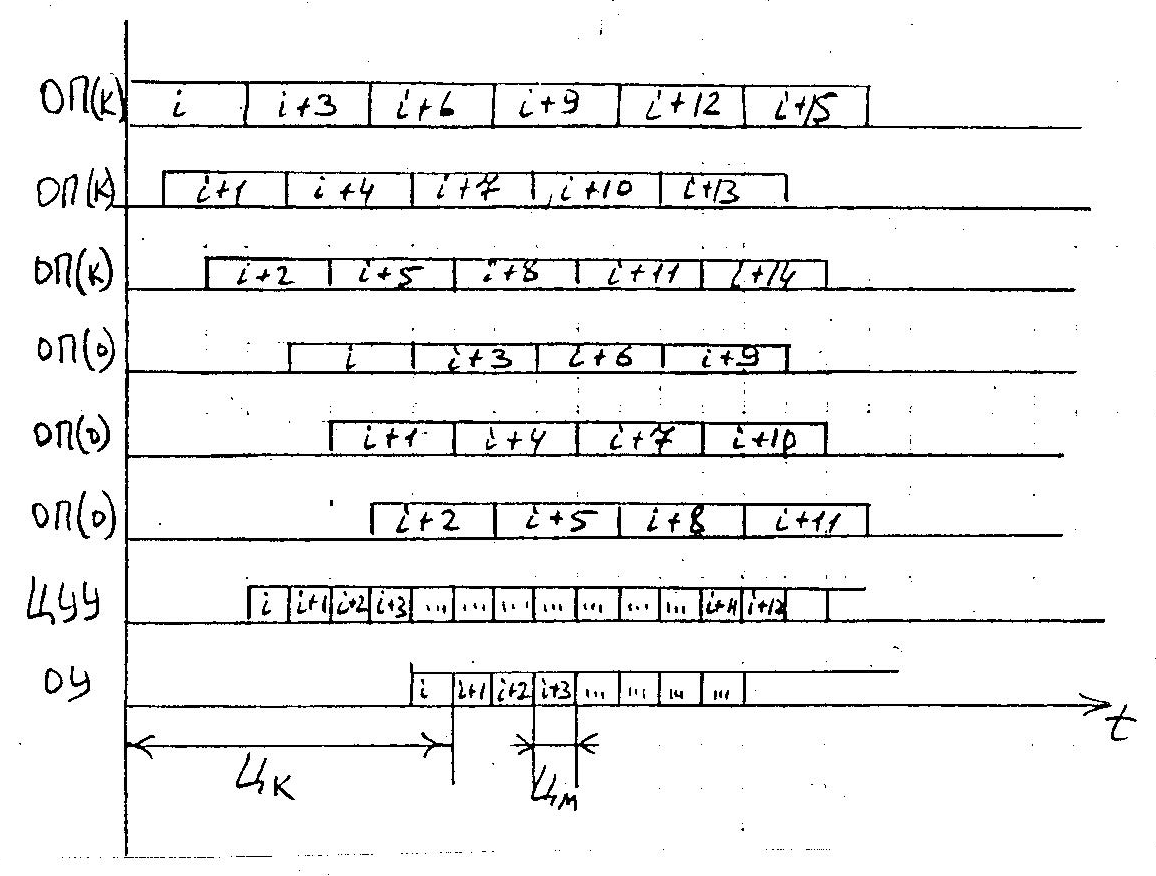 ОП(к) i i+3 i+6 i+9 i+12 i+15
ОП(к) i+1 i+4 i+7 i+10 i+13
ОП(к) i+2 i+5 i+8 i+11 i+14
ОП(о) i i+3 i+6 i+9
ОП(о) i+1 i+4 i+7 i+10
ОП(о) i+2 i+5 i+8 i+11
ЦУУ i i+1 i+2 i+3 ... ... ... ... ... ... ... i+11 i+12
ОУ i i+1 i+2 i+3 ... ... ... ...
t
Цк Цм